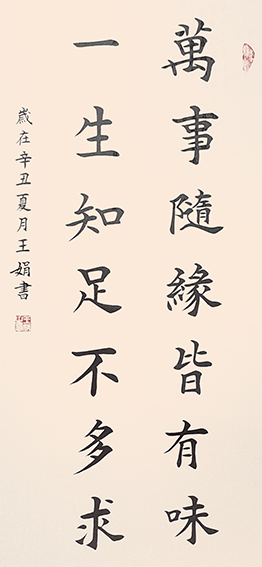 萬事隨緣皆有味
一生知足不多求
歲在辛丑夏月王娟書